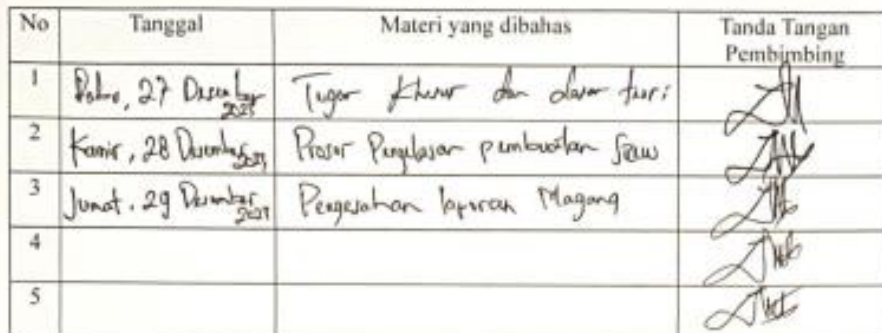 No Tanggal Materi yang dibahas Tanda Tangan Pembimbing
1 Rabu, 27 Desember 2023 Tugas Khusus dan dasar teori
2 Kamis, 28 Desember 2023 Proses pembuatan
3 Jumat, 29 Desember 2023 Pengesahan laporan Magang
4
5